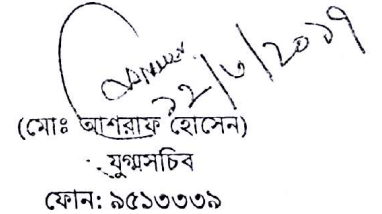 ১২/৩/২০১৭
(মোঃ আশরাফ হোসেন)
যুগ্মসচিব
ফোন: ৯৫১৩৩৩৯